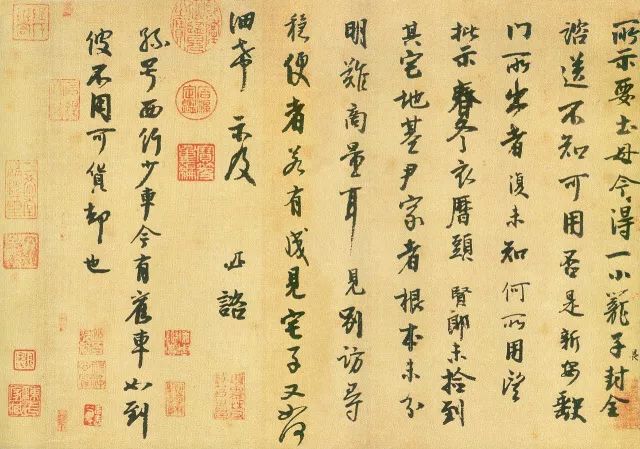 所示要土母今得一小籠子封全
諮送不知可用否是新安缺
門所出者復未知何所用望
批示春冬衣曆頭賢郎未撿到
其宅地基尹家者根本未分
明難商量耳見別訪尋
穩便者若有成見宅子又如何
細希示及
諮
孫号西行少車今有舊車如到
彼不用可貨却也